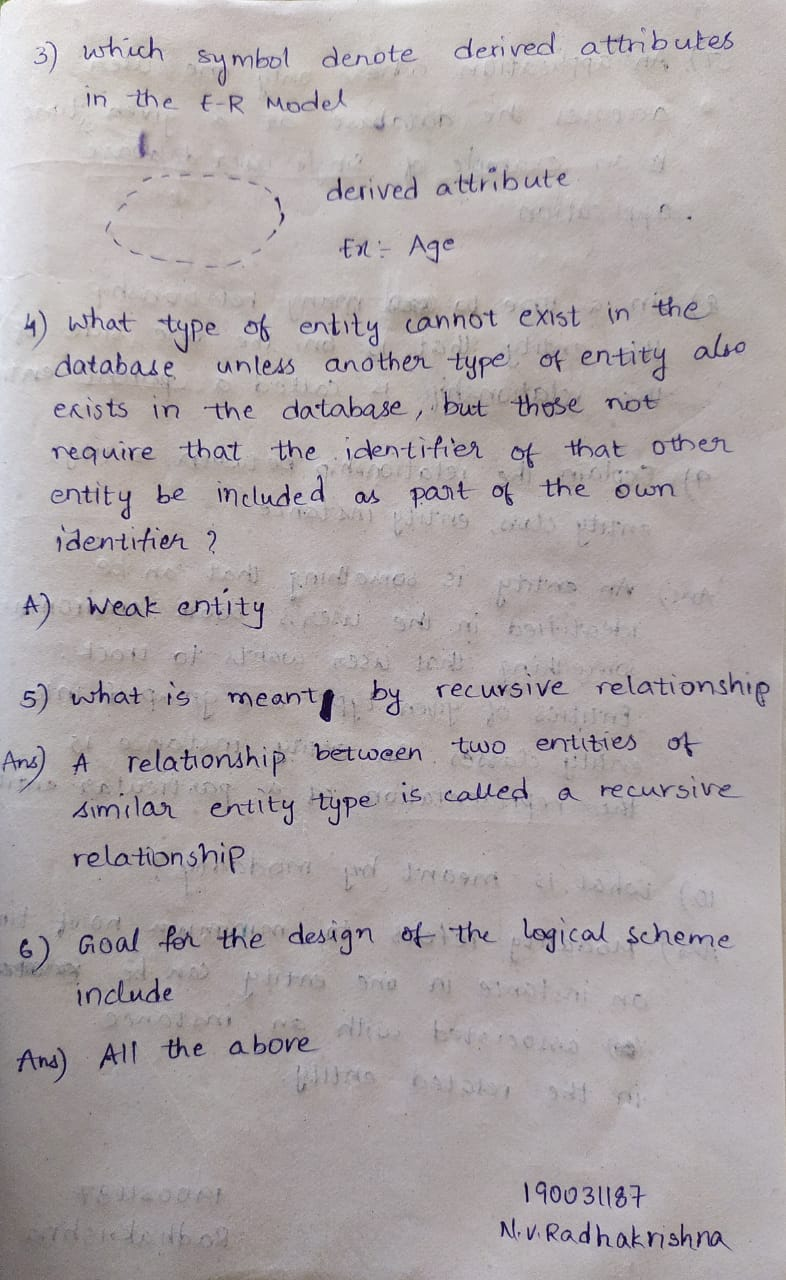 3) which symbol denote derived attributes
in the E-R Model
derived attribute
Ex:- Age
4) what type of entity cannot exist in the
database unless another type of entity also
exists in the database, but those not
require that the identifier of that other
entity be included as part of the own
identifier ?
A) Weak entity
5) what is meant by recursive relationship
Ans) A relationship between two entities of
similar entity type is called a recursive
relationship
6) Goal for the design of the logical scheme
include
Ans) All the above
190031187
N.V.Radhakrishna